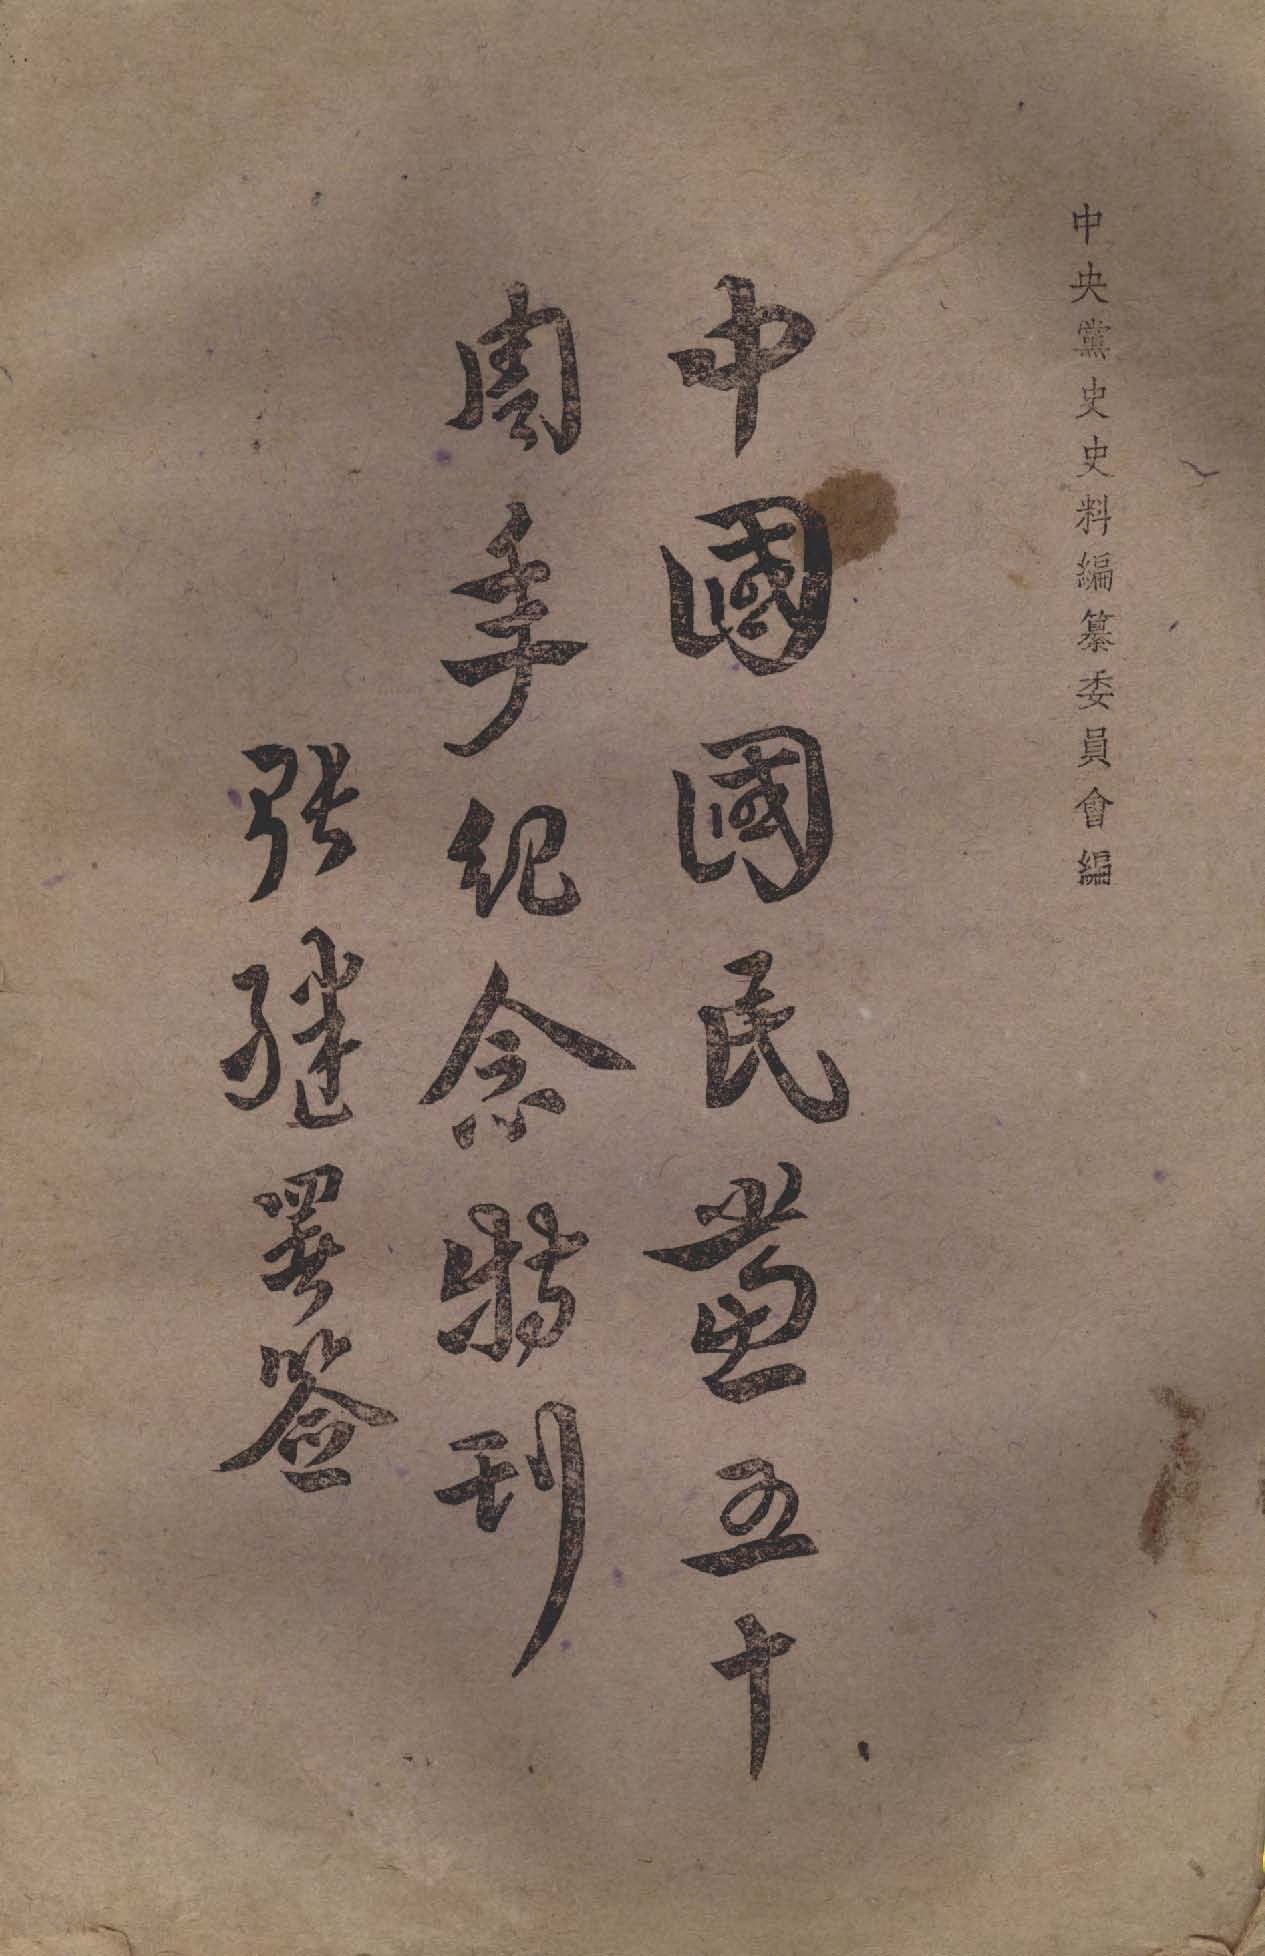 中央黨史史料編纂委員會編
中國國民黨五十
周年紀念特刊
張繼署簽